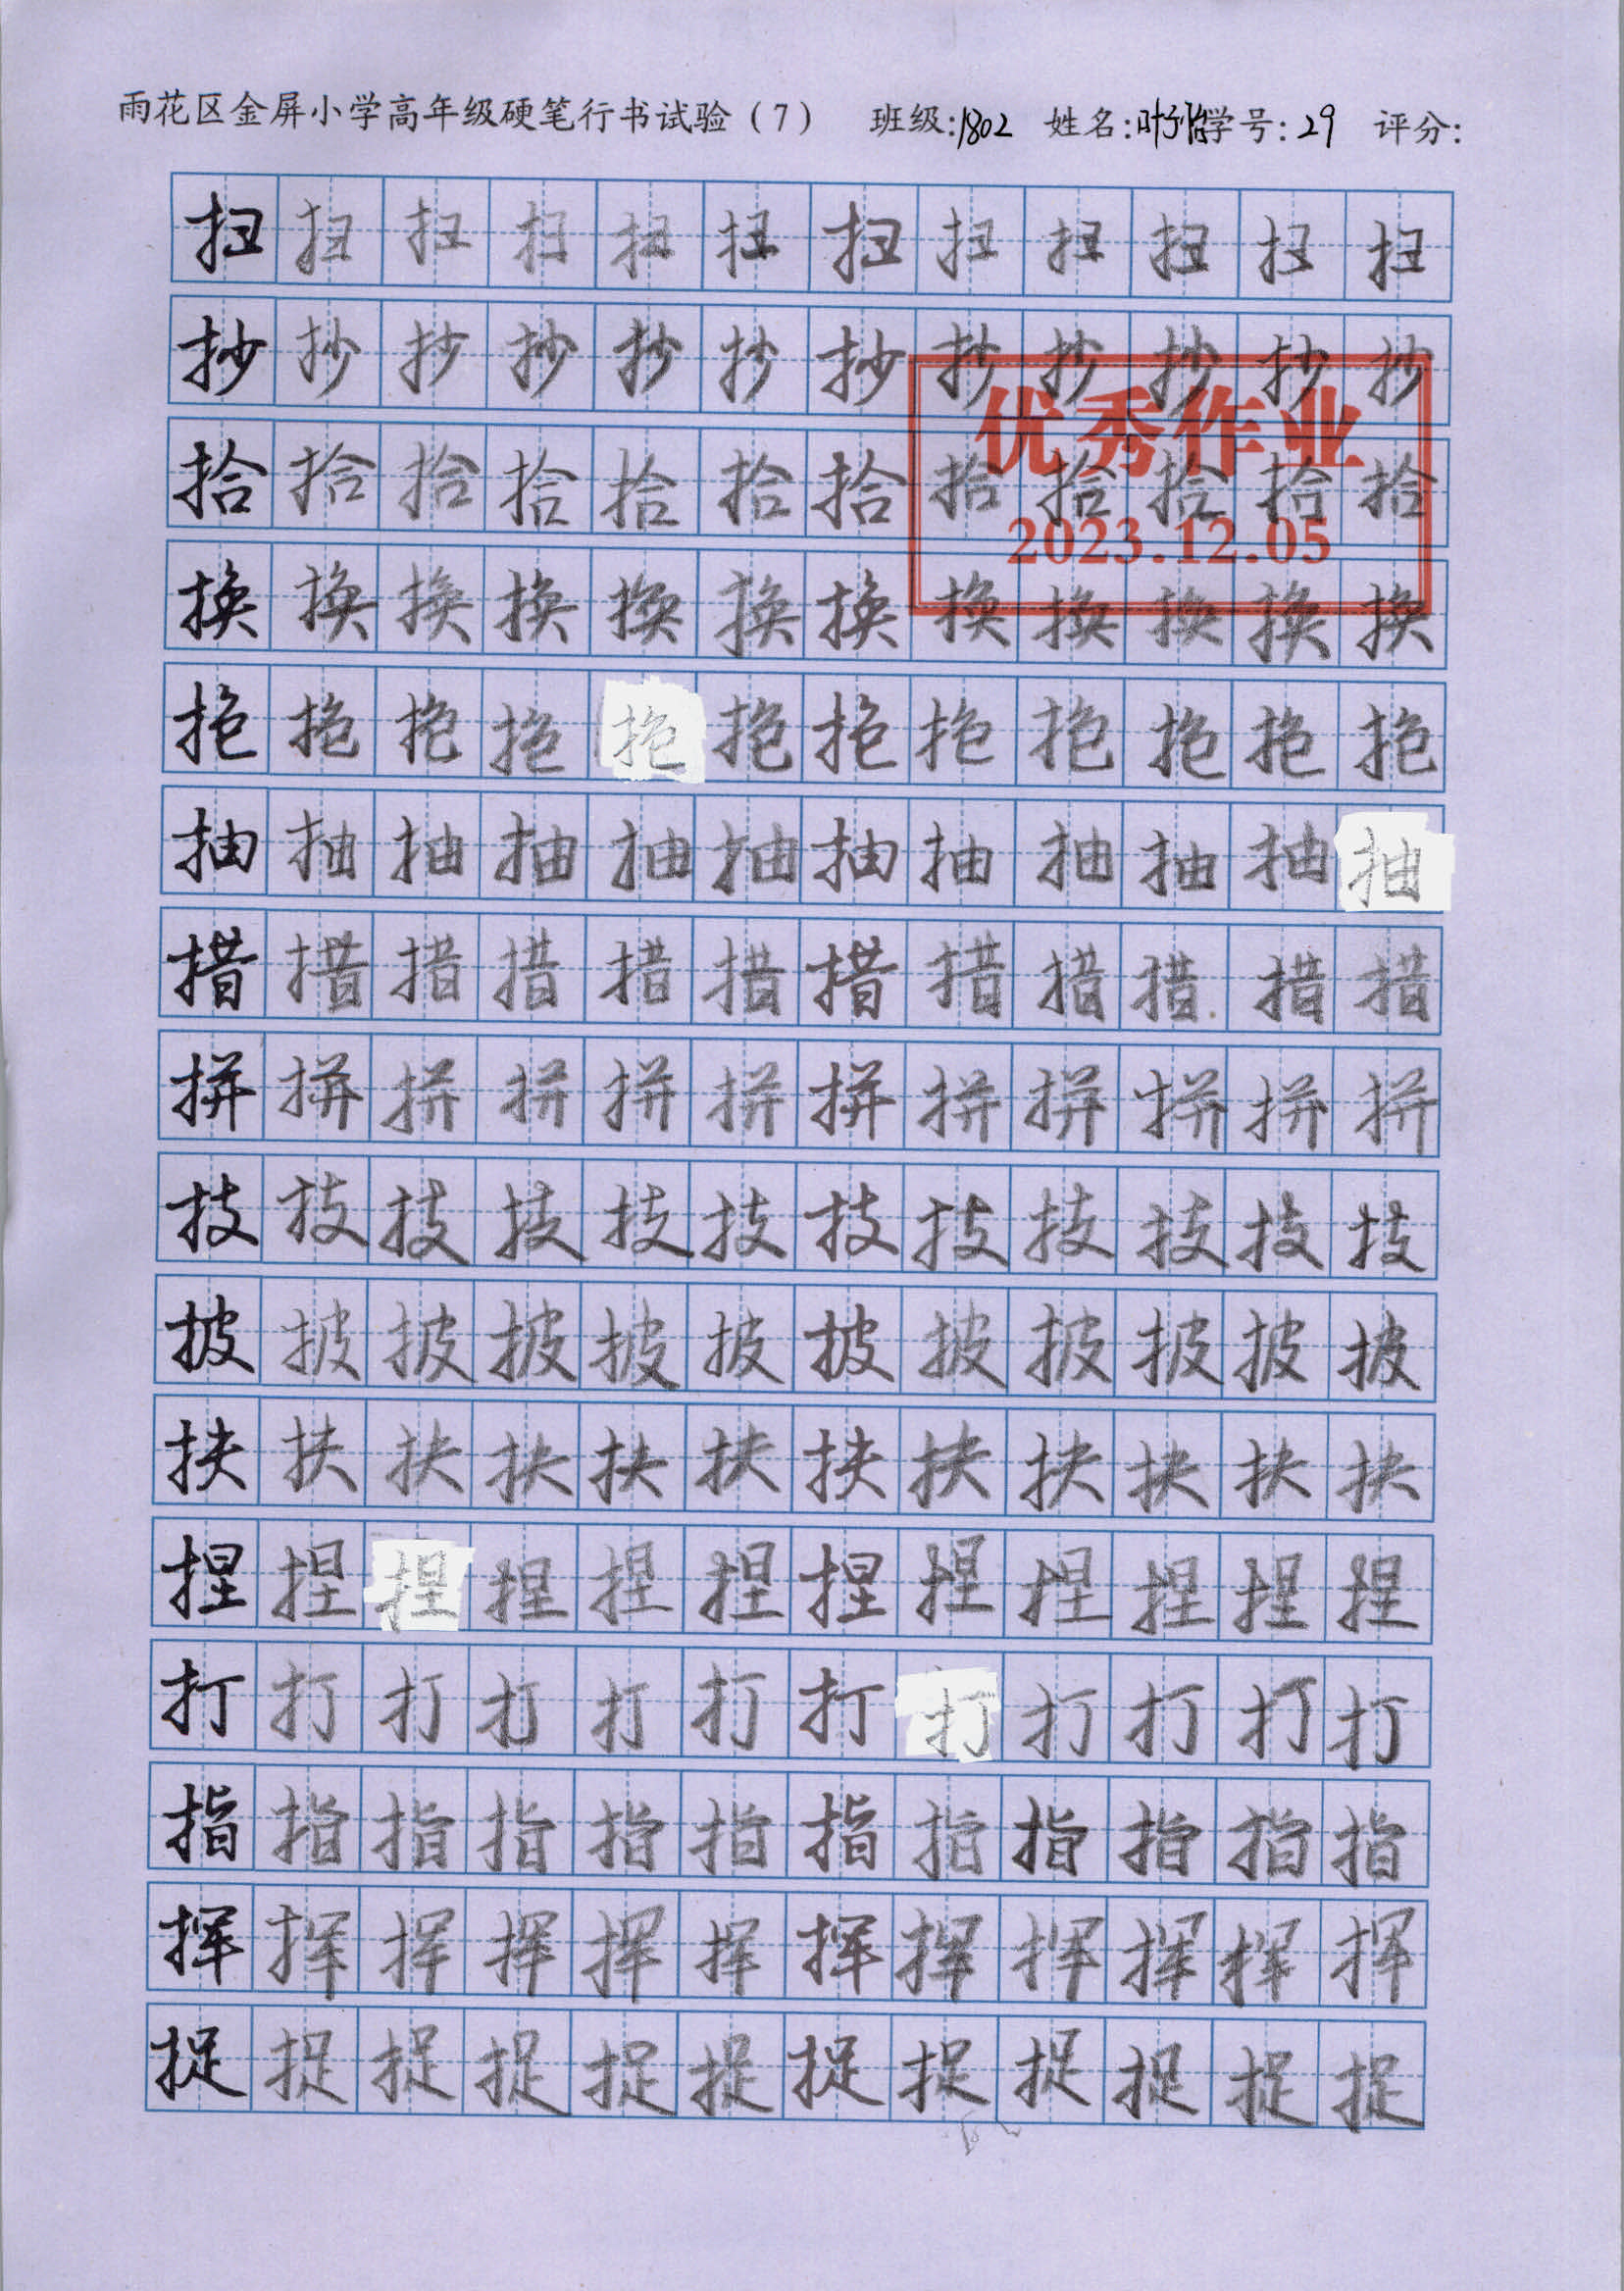 雨花区金屏小学高年级硬笔行书试验（7） 班级:1802 姓名:叶子怡 学号:29 评分:
扫扫扫扫扫扫扫扫扫扫扫扫
抄抄抄抄抄抄抄抄抄抄抄抄
优秀作业
拾拾拾拾拾拾拾拾拾拾拾拾
2023.12.05
换换换换换换换换换换换换
抱抱抱抱抱抱抱抱抱抱抱抱
抽抽抽抽抽抽抽抽抽抽抽抽
措措措措措措措措措措措措
拼拼拼拼拼拼拼拼拼拼拼拼
技技技技技技技技技技技技
披披披披披披披披披披披披
扶扶扶扶扶扶扶扶扶扶扶扶
捏捏捏捏捏捏捏捏捏捏捏捏
打打打打打打打打打打打打
指指指指指指指指指指指指
挥挥挥挥挥挥挥挥挥挥挥挥
捉捉捉捉捉捉捉捉捉捉捉捉